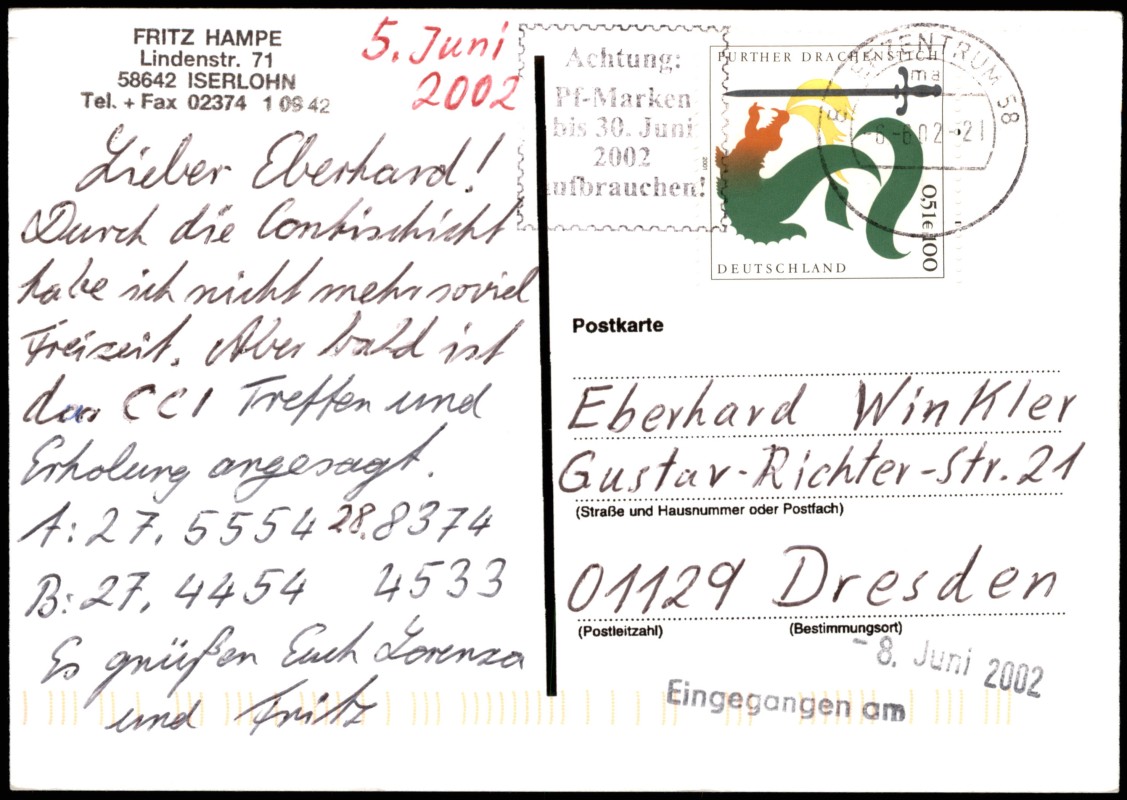 FRITZ HAMPE
Lindenstr. 71
58642 ISERLOHN
Tel. + Fax 02374 1 09 42
5. Juni
2002
Lieber Eberhard!
Durch die Contischicht
habe ich nicht mehr soviel
Freizeit. Aber bald ist
das CCI Treffen und
Erholung angesagt.
A: 27. 5554 28. 8374
B: 27. 4454 4533
Es grüßen Euch Lorenza
und Fritz
Achtung:
Pf-Marken
bis 30. Juni
2002
aufbrauchen!
FURTHER DRACHENSTICH
2001
0,51€ 100
DEUTSCHLAND
ZENTRUM 58
ma
-6.-6.02-21
Postkarte
Eberhard Winkler
Gustav-Richter-Str. 21
(Straße und Hausnummer oder Postfach)
01129 Dresden
(Postleitzahl) (Bestimmungsort)
- 8. Juni 2002
Eingegangen am